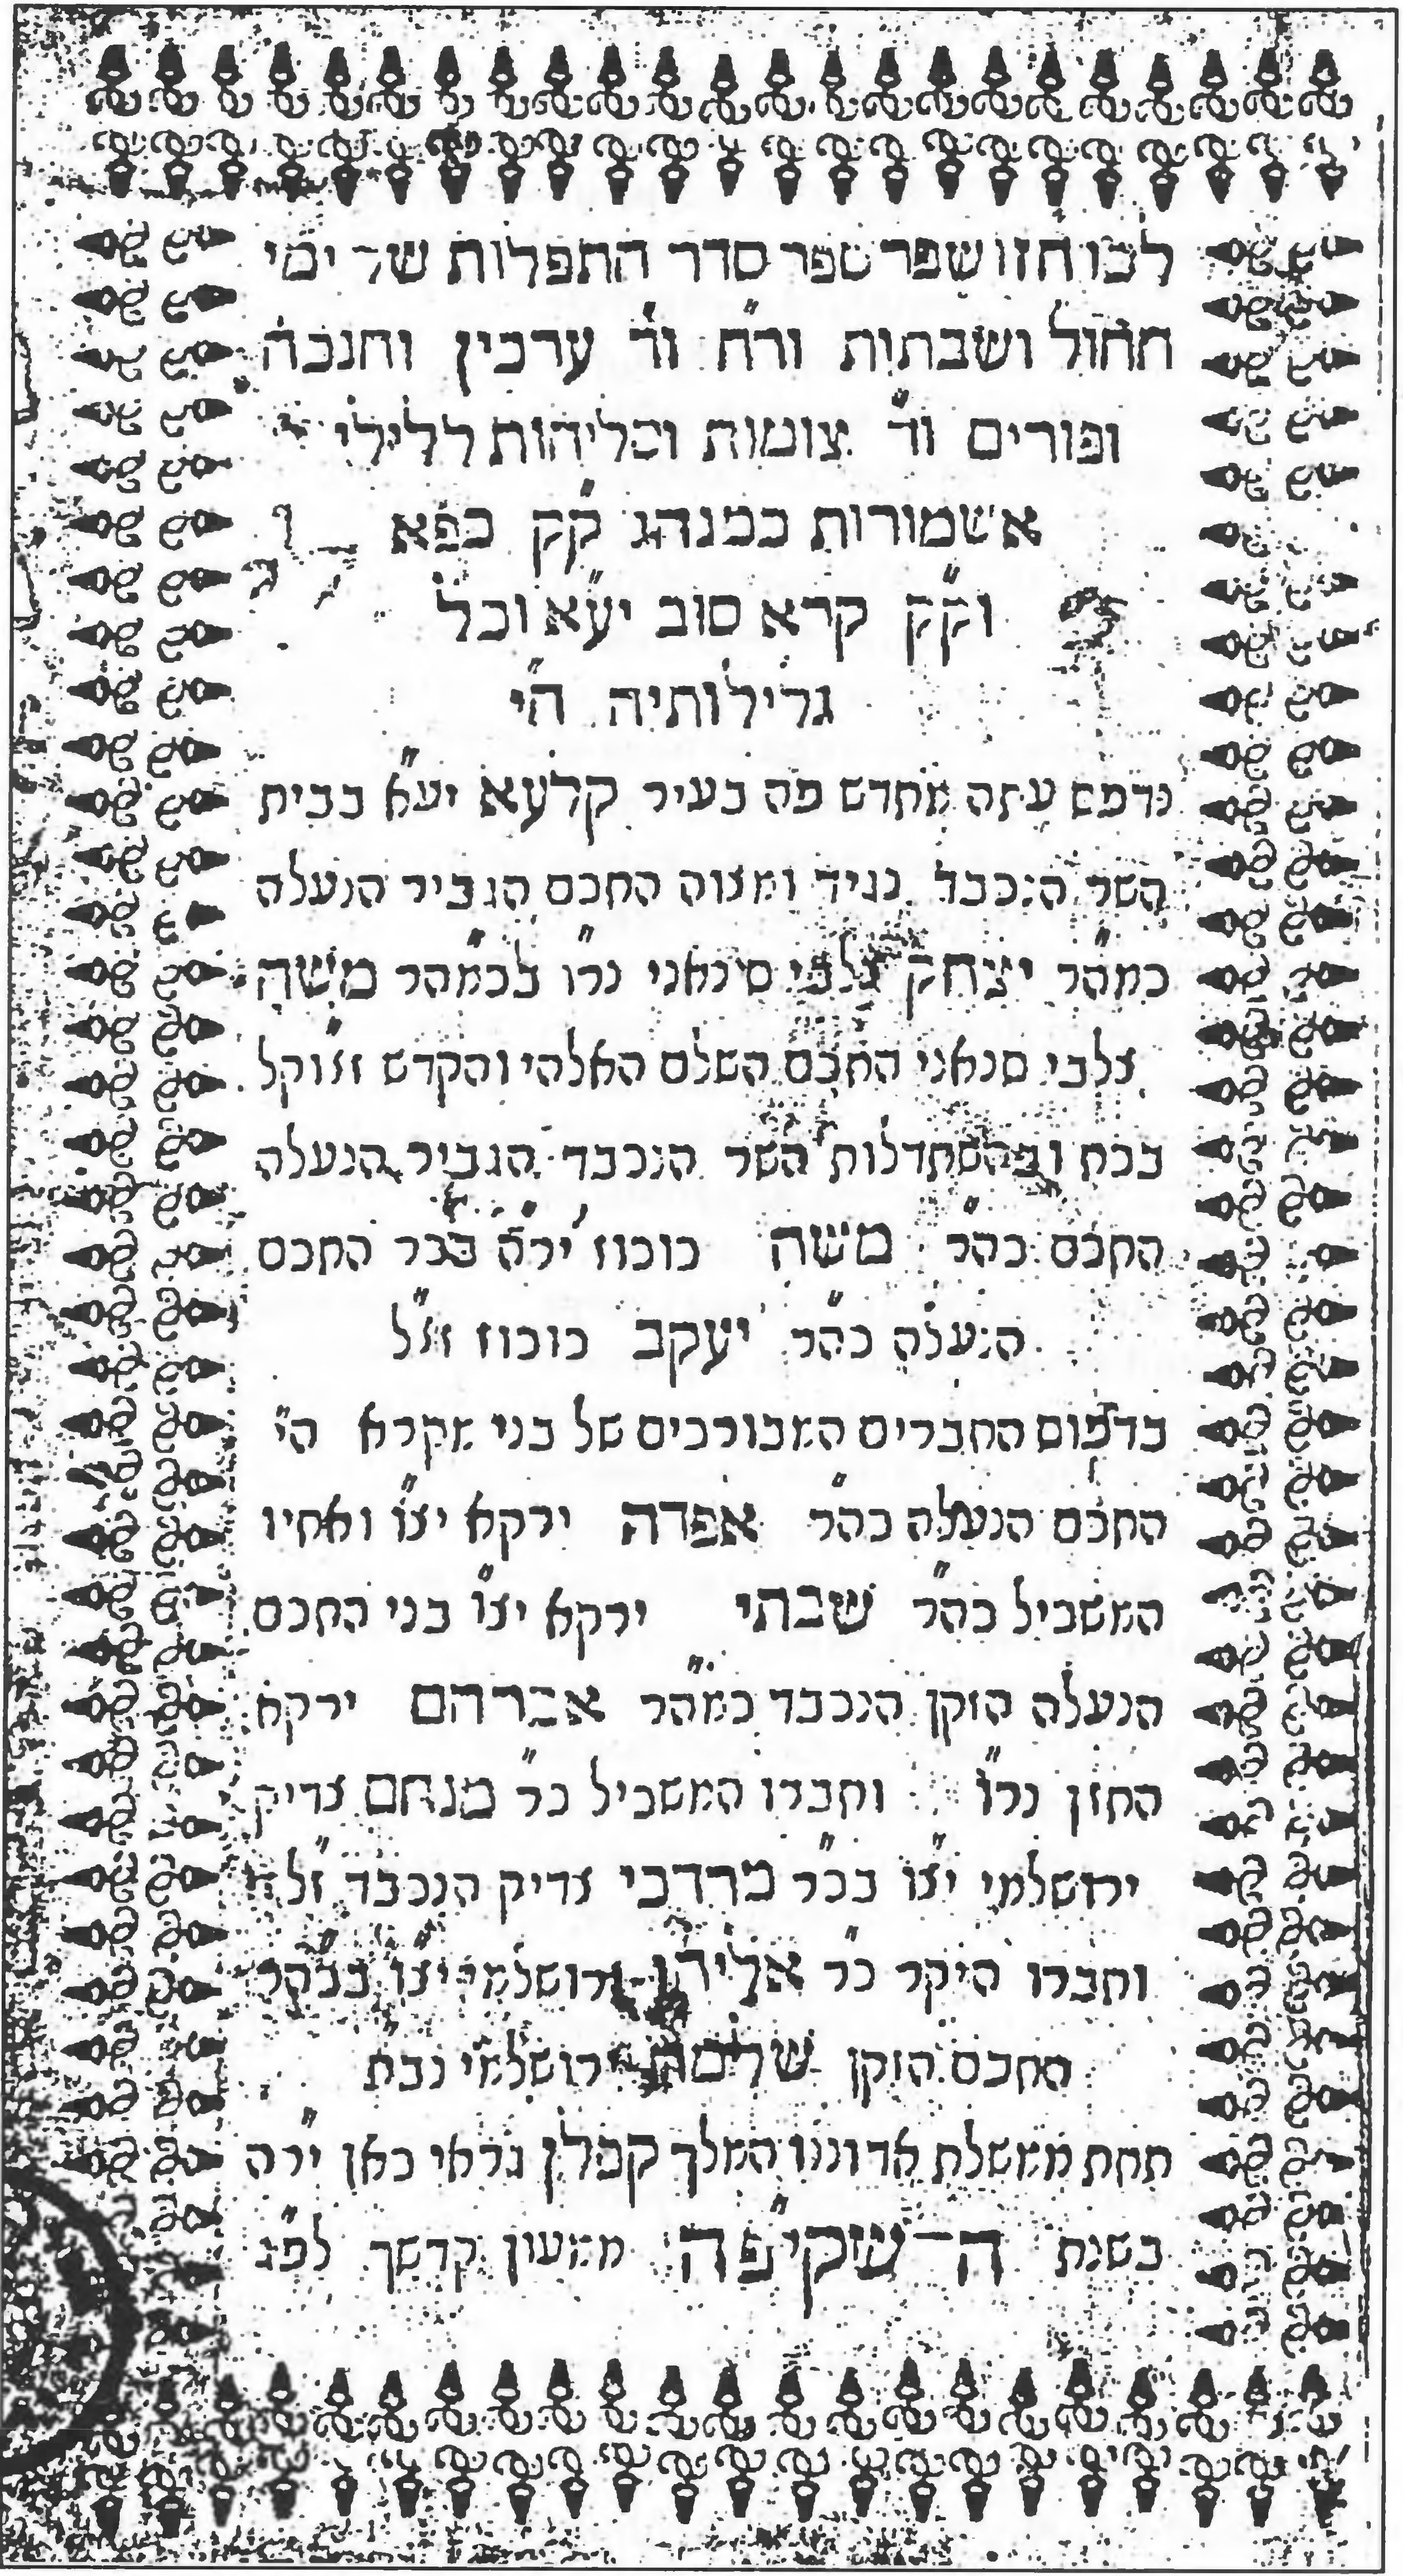 לכו חזו שפר ספר סדר התפלות של ימי
החול ושבתות ור״ח וד׳ ערכין וחנכה
ופורים וד״ צומות וסליחות ללילי
אשמורות כמנהג ק״ק כפא
וק״ק קרא סוב יע״א וכל
גלילותיה הי״
נדפס עתה מחדש פה בעיר קלעא יע״א בבית
השר הנכבד נגיד ומצוה החכם הגביר הנעלה
כמה״ר יצחק צלבי סינאני נר״ו בכמ״הר משה
צלבי סנאני החכם השלם האלהי והקדש זצ״וקל
בכח ובהשתדלות השר הנכבד הגביר הנעלה
החכם כה״ר משה כוכוז יר״ה בכר החכם
הנעלה כה״ר יעקב כוכוז ז״ל
בדפוס החברים המבורכים של בני מקרא הי״
החכם הנעלה כה״ר אפדה ירקא יצ״ו ואחיו
המשכיל כה״ר שבתי ירקא יצ״ו בני החכם
הנעלה הזקן הנכבד כמ״הר אברהם ירקא
החזן נר״ו וחברו המשכיל כ״ר מנחם צדיק
ירושלמי יצ״ו בכ״ר מרדכי צדיק הנכבד ז״ל
וחברו היקר כ״ר אליהו ירושלמי יצ״ו בכ״הר
החכם הזקן שלמה ירושלמי נב״ת
תחת ממשלת אדוננו המלך קפלן גראי כאן יר״ה
בשנת ה־שקיפה ממעון קדשך לפ״ג